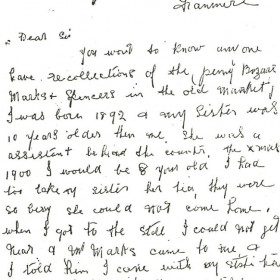 Tranmere
Dear Sir
you want to know anyone
have recollections of the penny Bazaar
Marks & Spencers in the old market,
I was born 1892 & my sister was
10 years older then me. she was a
assistent behind the counter, the xmas
1900 I would be 8 year old I had
too take my sister her tea, they were
so busy she could not come home.
when I got to the stall I could not get
near a Mr Marks came to me &
I told him I came with my